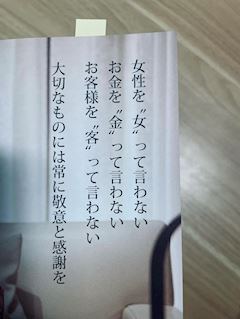 女性を〝女〟って言わない
お金を〝金〟って言わない
お客様を〝客〟って言わない
大切なものには常に敬意と感謝を